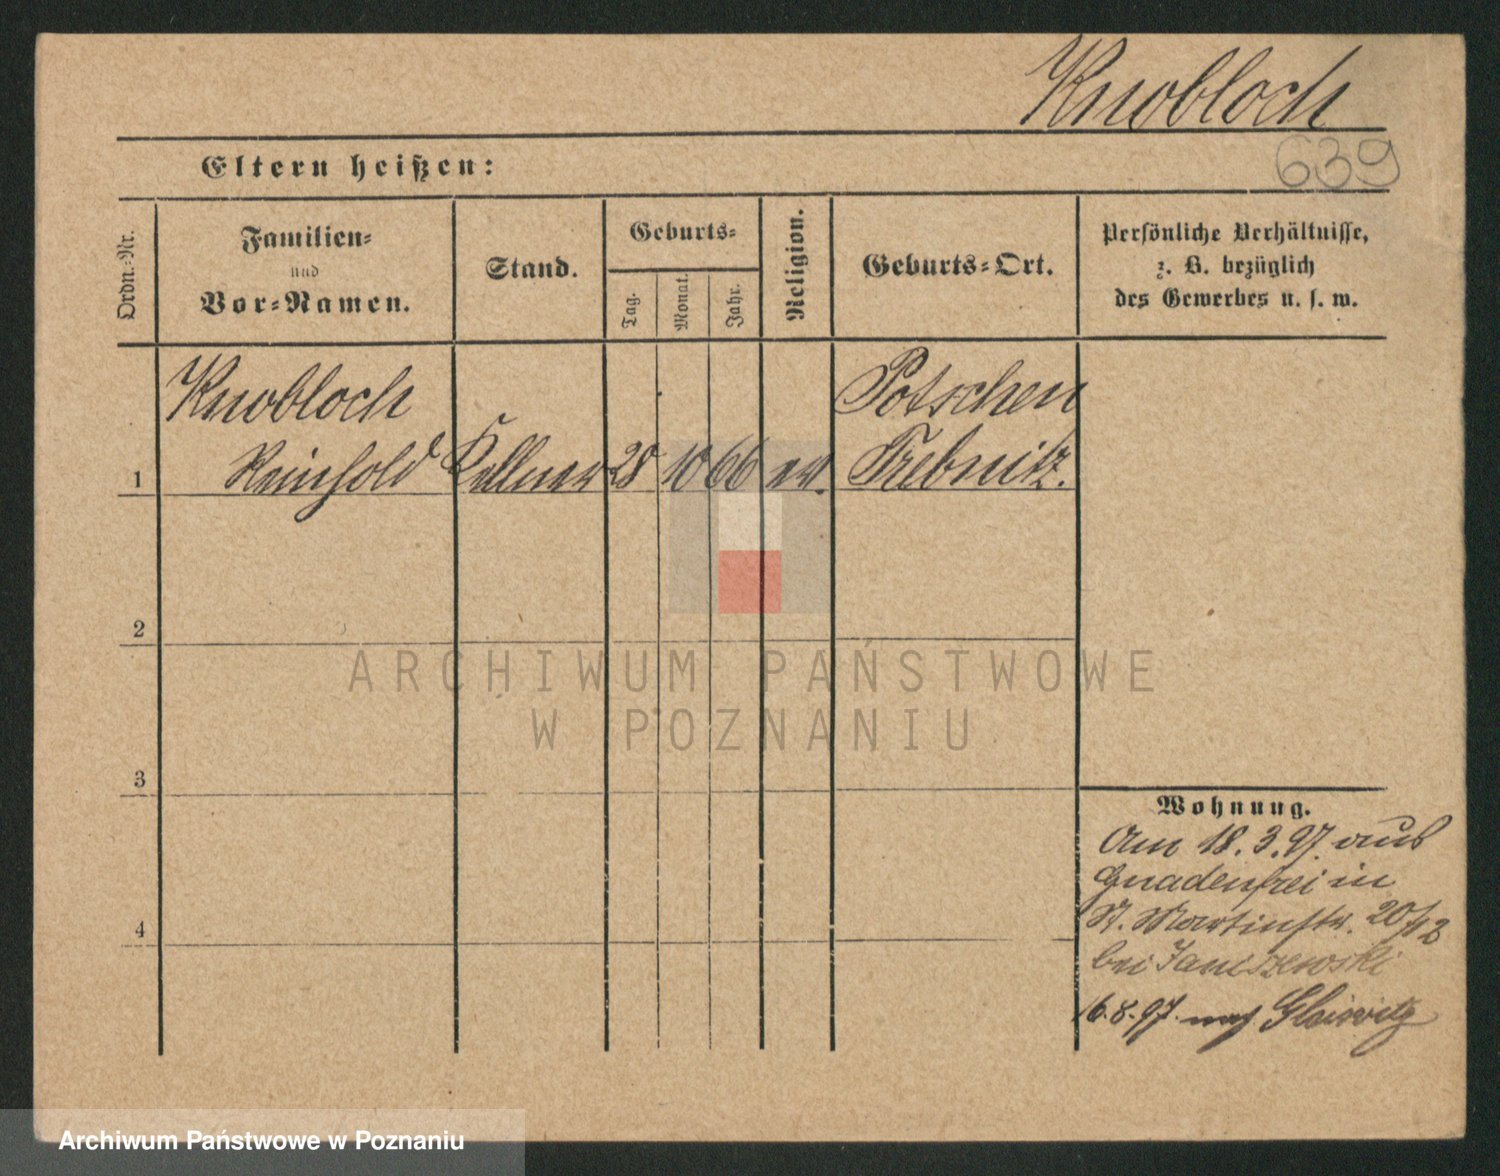 Knobloch
639
Eltern heißen:
Ordn.-Nr.
Familien-
und
Vor-Namen.
Stand.
Geburts-
Tag.
Monat.
Jahr.
Religion.
Geburts-Ort.
Persönliche Verhältnisse,
z. B. bezüglich
des Gewerbes u. s. w.
Knobloch
Potschen
1 Reinhold Kellner 28 10 66 ev. Trebnitz.
2
3
4
Wohnung.
Am 18.3.97. aus
Gnadenfrei in
St. Martinstr. 20/12
bei Janiszewski
16.8.97. nach Gleiwitz
ARCHIWUM PAŃSTWOWE
W POZNANIU
Archiwum Państwowe w Poznaniu